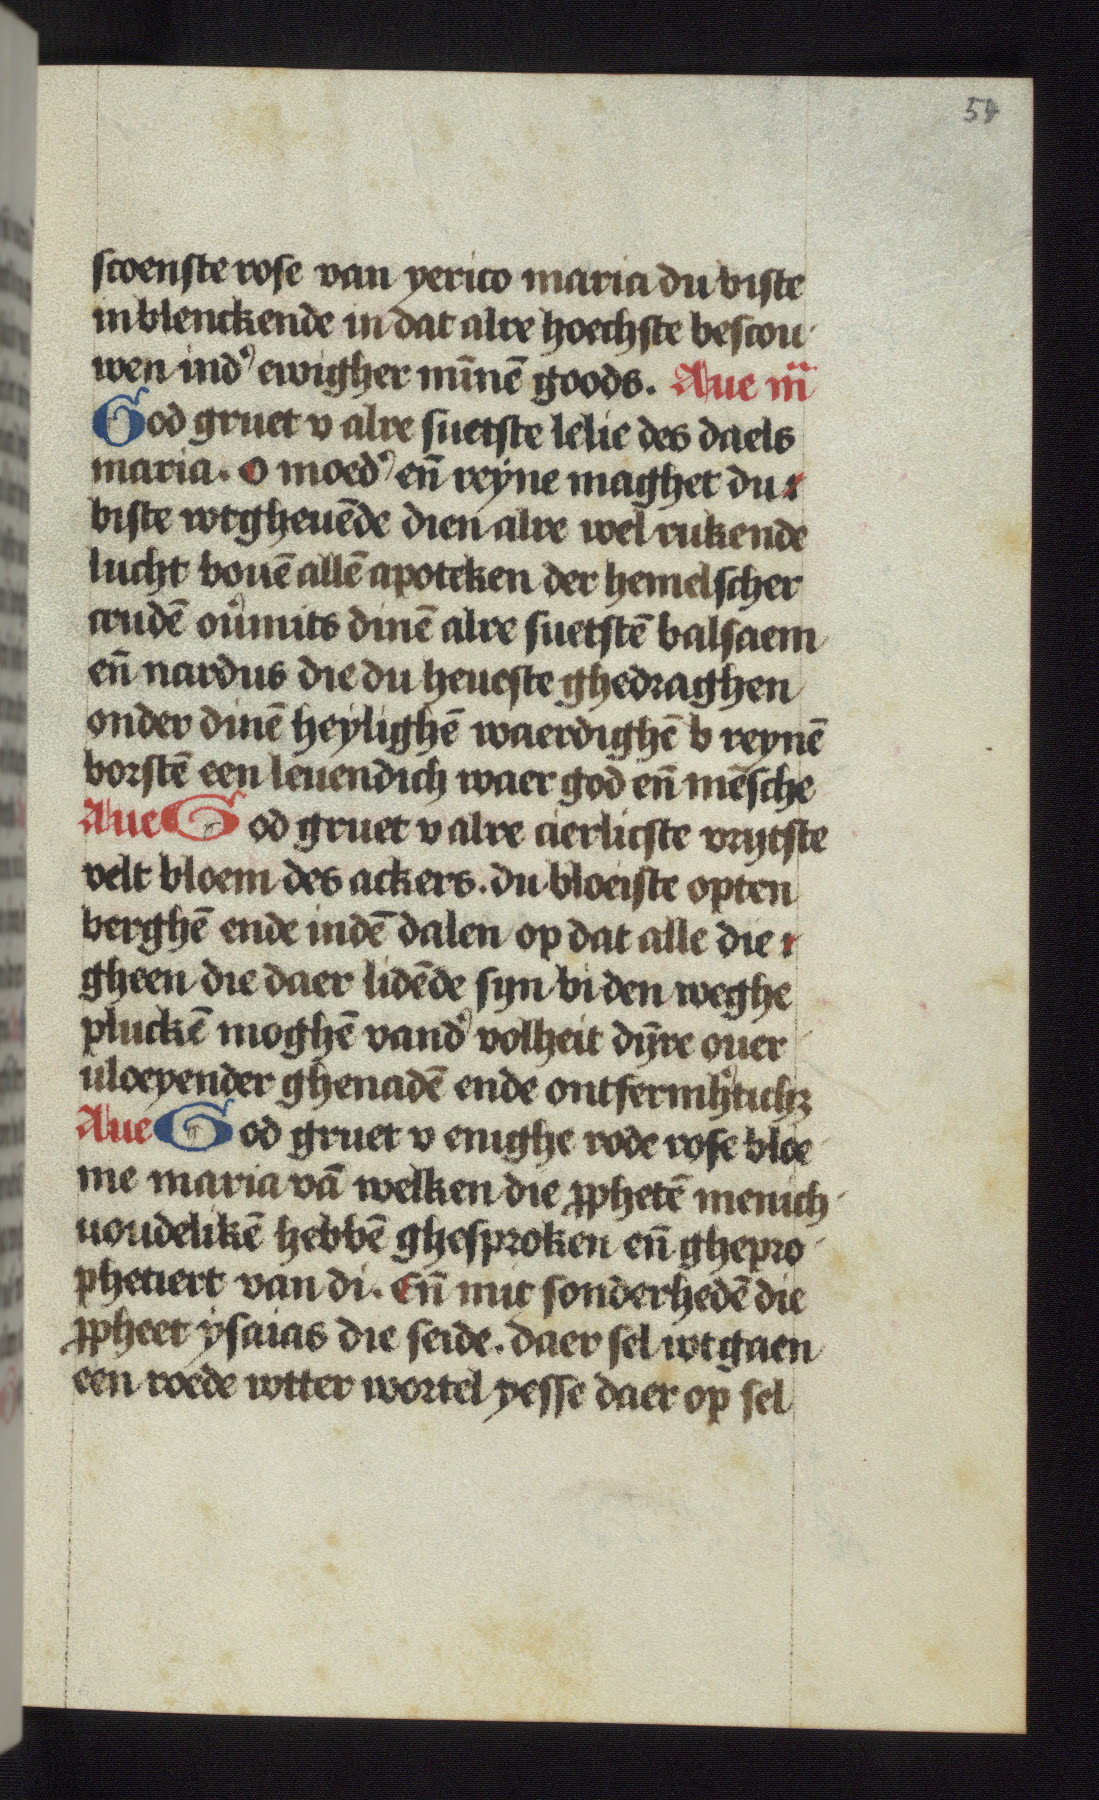 54
scoenste rose van yerico maria du biste
in blenckende in dat alre hoechste bescou
wen indʾ ewigher mīnē goods. Aue m̄
God gruet v alre suetste lelie des daels
maria. o moedʾ en̄ reyne maghet du
biste wtgheuēde dien alre wel rukende
lucht bouē allē apoteken der hemelscher
crudē ou͛mits dinē alre suetstē balsaem
en̄ nardus die du heueste ghedraghen
onder dinē heylighē waerdighē v reynē
borstē een leuendich waer god en̄ mēsche
Aue God gruet v alre cierlicste vrytste
velt bloem des ackers. du bloeiste opten
berghē ende indē dalen op dat alle die
gheen die daer lidēde syn bi den weghe
pluckē moghē vandʾ volheit dȳre ouer
uloeyender ghenadē ende ontfermh͛tichꝫ
Aue God gruet v enighe rode rose bloe
me maria vā welken die ꝓphetē menich
uoudelikē hebbē ghesproken en̄ ghepro
phetiert van di. En̄ mit sonderhedē die
ꝓpheet ysaias die seide. daer sel wtgaen
een roede wtter wortel yesse daer op sel